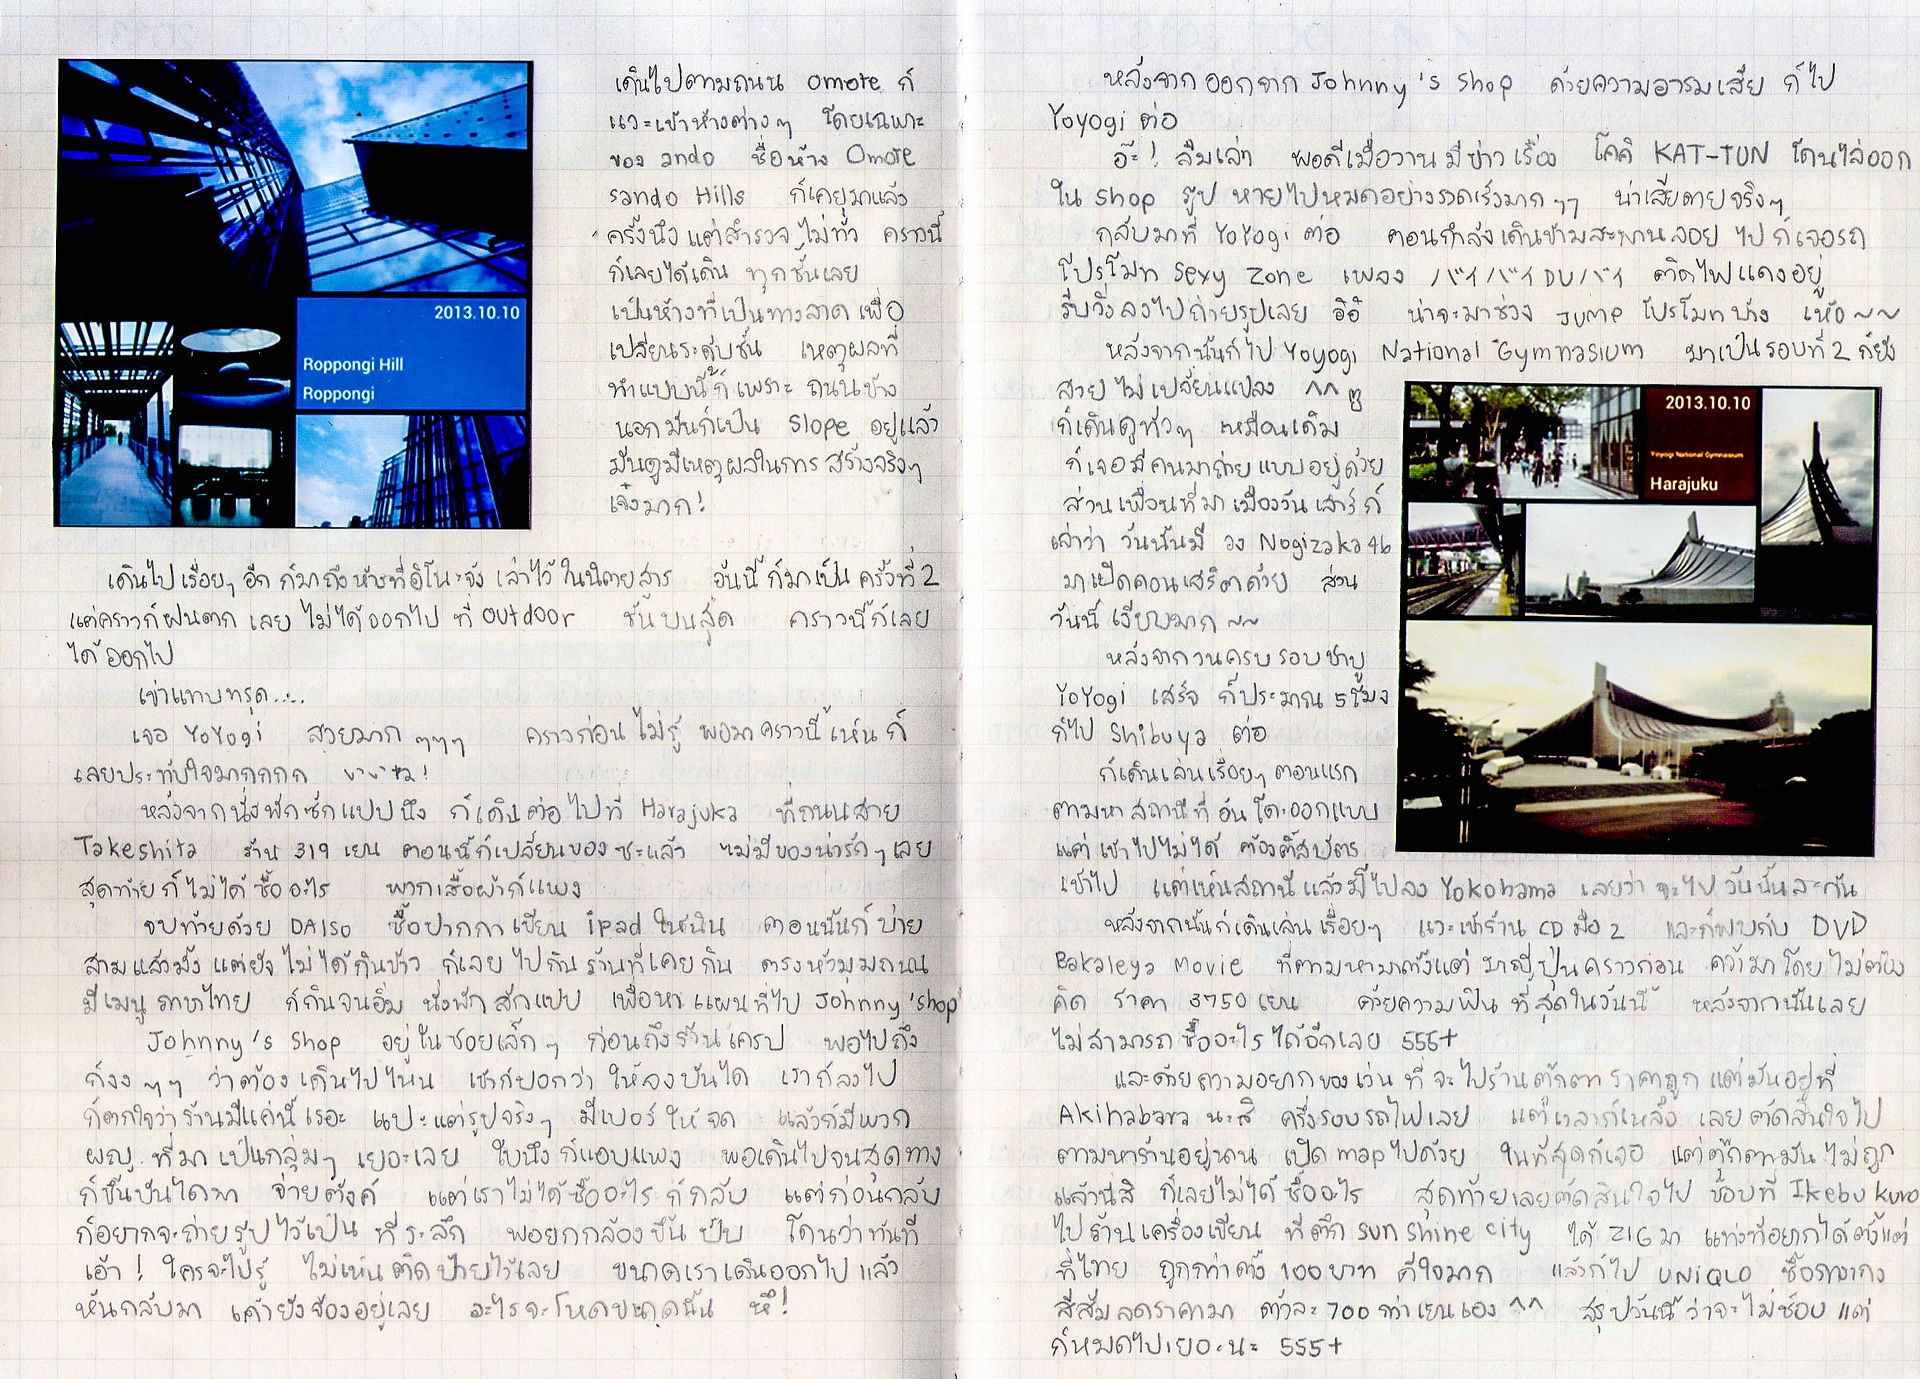 เดินไปตามถนน omote ก็
แวะเข้าห้างต่างๆ โดยเฉพาะ
ของ ando ชื่อห้าง Omote
sando Hills ก็เคยมาแล้ว
ครั้งนึง แต่สำรวจไม่ทั่ว คราวนี้
ก็เลยได้เดิน ทุกชั้นเลย
เป็นห้างที่เป็นทางลาด เพื่อ
เปลี่ยนระดับชั้น เหตุผลที่
ทำแบบนี้ก็เพราะ ถนนข้าง
นอกมันก็เป็น Slope อยู่แล้ว
มันดูมีเหตุผลในการ สร้างจริงๆ
เจ๋งมาก!
2013.10.10
Roppongi Hill
Roppongi
เดินไปเรื่อยๆ อีก ก็มาถึงห้างที่ เล่าไว้ ในนิตยสาร วันนี้ ก็มาเป็น ครั้งที่ 2
แต่คราวก็ฝนตก เลย ไม่ได้ออกไป ที่ outdoor ชั้นบนสุด คราวนี้ก็เลย
ได้ออกไป
เข่าแทบทรุด....
เจอ YoYogi สวยมาก ๆๆๆ คราวก่อน ไม่รู้ พอมาคราวนี้ เห็นก็
เลยประทับใจมากกกก
หลังจากนั่งพักซักแปปนึง ก็เดินต่อ ไปที่ Harajuka ที่ถนนสาย
Takeshita ร้าน 319 เยน ตอนนี้ก็เปลี่ยนของซะแล้ว ไม่มีของน่ารักๆ เลย
สุดท้ายก็ไม่ได้ ซื้ออะไร พวกเสื้อผ้าก็แพง
จบท้ายด้วย DAISO ซื้อปากกาเขียน ipad ตอนนั้นก็บ่าย
สามแล้วมั้ง แต่ยังไม่ได้กินข้าว ก็เลยไปกินร้านที่เคยกิน ตรงหัวมุมถนน
มีเมนูภาษาไทย ก็กินจนอิ่ม นั่งพักสักแปป เพื่อหาแผนที่ไป Johnny'shop
Johnny's Shop อยู่ในซอยเล็กๆ ก่อนถึงร้านเครป พอไปถึง
ก็งง ๆๆ ว่าต้องเดินไปไหน เขาก็บอกว่า ให้ลงบันได เราก็ลงไป
ก็ตกใจว่าร้านมีแค่นี้เรอะ แปะแต่รูปจริงๆ มีเบอร์ให้จด แล้วก็มีพวก
ผญ. ที่มาเป็นกลุ่มๆ เยอะเลย ใบนึงก็แอบแพง พอเดินไปจนสุดทาง
ก็ขึ้นบันไดมา จ่ายตังค์ แต่เราไม่ได้ซื้ออะไร ก็กลับ แต่ก่อนกลับ
ก็อยากจะถ่ายรูปไว้เป็นที่ระลึก พอยกกล้องขึ้นปุ๊บ โดนว่าทันที
เอ้า! ใครจะไปรู้ ไม่เห็นติดป้ายไว้เลย ขนาดเราเดินออกไปแล้ว
หันกลับมา เค้ายังจ้องอยู่เลย อะไรจะโหดขนาดนั้น หึ!
หลังจากออกจาก Johnny's Shop ด้วยความอารมเสีย ก็ไป
Yoyogi ต่อ
อ๊ะ! ลืมเล่า พอดีเมื่อวานมีข่าวเรื่อง โคคิ KAT-TUN โดนไล่ออก
ใน Shop รูป หายไปหมดอย่างรวดเร็วมาก ๆๆ น่าเสียดายจริงๆ
กลับมาที่ YoYogi ต่อ ตอนกำลังเดินข้ามสะพานลอย ไป ก็เจอรถ
โปรโมท Sexy Zone เพลง バイバイDuバイ ติดไฟแดงอยู่
รีบวิ่งลงไปถ่ายรูปเลย อิอิ น่าจะมาช่วง Jump โปรโมทบ้าง เห้อ ~~
หลังจากนั้นก็ไป Yoyogi National Gymnasium มาเป็นรอบที่ 2 ก็ยัง
สวยไม่เปลี่ยนแปลง ^^
ก็เดินดูทั่วๆ เหมือนเดิม
ก็เจอมีคนมาถ่ายแบบอยู่ด้วย
ส่วนเพื่อนที่มาเมื่อวันเสาร์ ก็
เล่าว่า วันนั้นมี วง Nogizaka46
มาเปิดคอนเสริตด้วย ส่วน
วันนี้ เงียบมาก ~~
หลังจากวนครบรอบ
YoYogi เสร็จ ก็ประมาณ 5 โมง
ก็ไป Shibuya ต่อ
ก็เดินเล่นเรื่อยๆ ตอนแรก
ตามหาสถานีที่ อันโดะออกแบบ
แต่เข้าไปไม่ได้ ต้องตี๊ดบัตร
เข้าไป แต่เห็นสถานีแล้วมีไปลง Yokohama เลยว่า จะไปวันนั้นละกัน
2013.10.10
Yoyogi National Gymnasium
Harajuku
หลังจากนั้นก็เดินเล่นเรื่อยๆ แวะเข้าร้าน CD มือ 2 และก็พบกับ DVD
Bakaleya Movie ที่ตามหามาตั้งแต่ มาญี่ปุ่นคราวก่อน คว้ามาโดยไม่ต้อง
คิด ราคา 3750 เยน ด้วยความฟิน ที่สุดในวันนี้ หลังจากนั้นเลย
ไม่สามารถ ซื้ออะไรได้อีกเลย 555+
และด้วยความอยากของเว่น ที่จะไปร้านตุ๊กตาราคาถูก แต่มันอยู่ที่
Akihabara นะสิ ครึ่งรอบรถไฟเลย แต่เวลาก็เหลือ เลยตัดสินใจไป
ตามหาร้านอยู่นาน เปิด map ไปด้วย ในที่สุดก็เจอ แต่ตุ๊กตามันไม่ถูก
แล้วนี่สิ ก็เลยไม่ได้ซื้ออะไร สุดท้ายเลยตัดสินใจไป ช้อบที่ Ikebukuro
ไปร้านเครื่องเขียน ที่ตึก sun shine city ได้ ZIG มา แท่งที่อยากได้ตั้งแต่
ที่ไทย ถูกกว่าตั้ง 100 บาท ดีใจมาก แล้วก็ไป UNIQLO ซื้อกางเกง
สีส้ม ลดราคามา ตัวละ 700 กว่าเยนเอง ^^ สรุปวันนี้ ว่าจะไม่ช้อบ แต่
ก็หมดไปเยอะนะ 555+